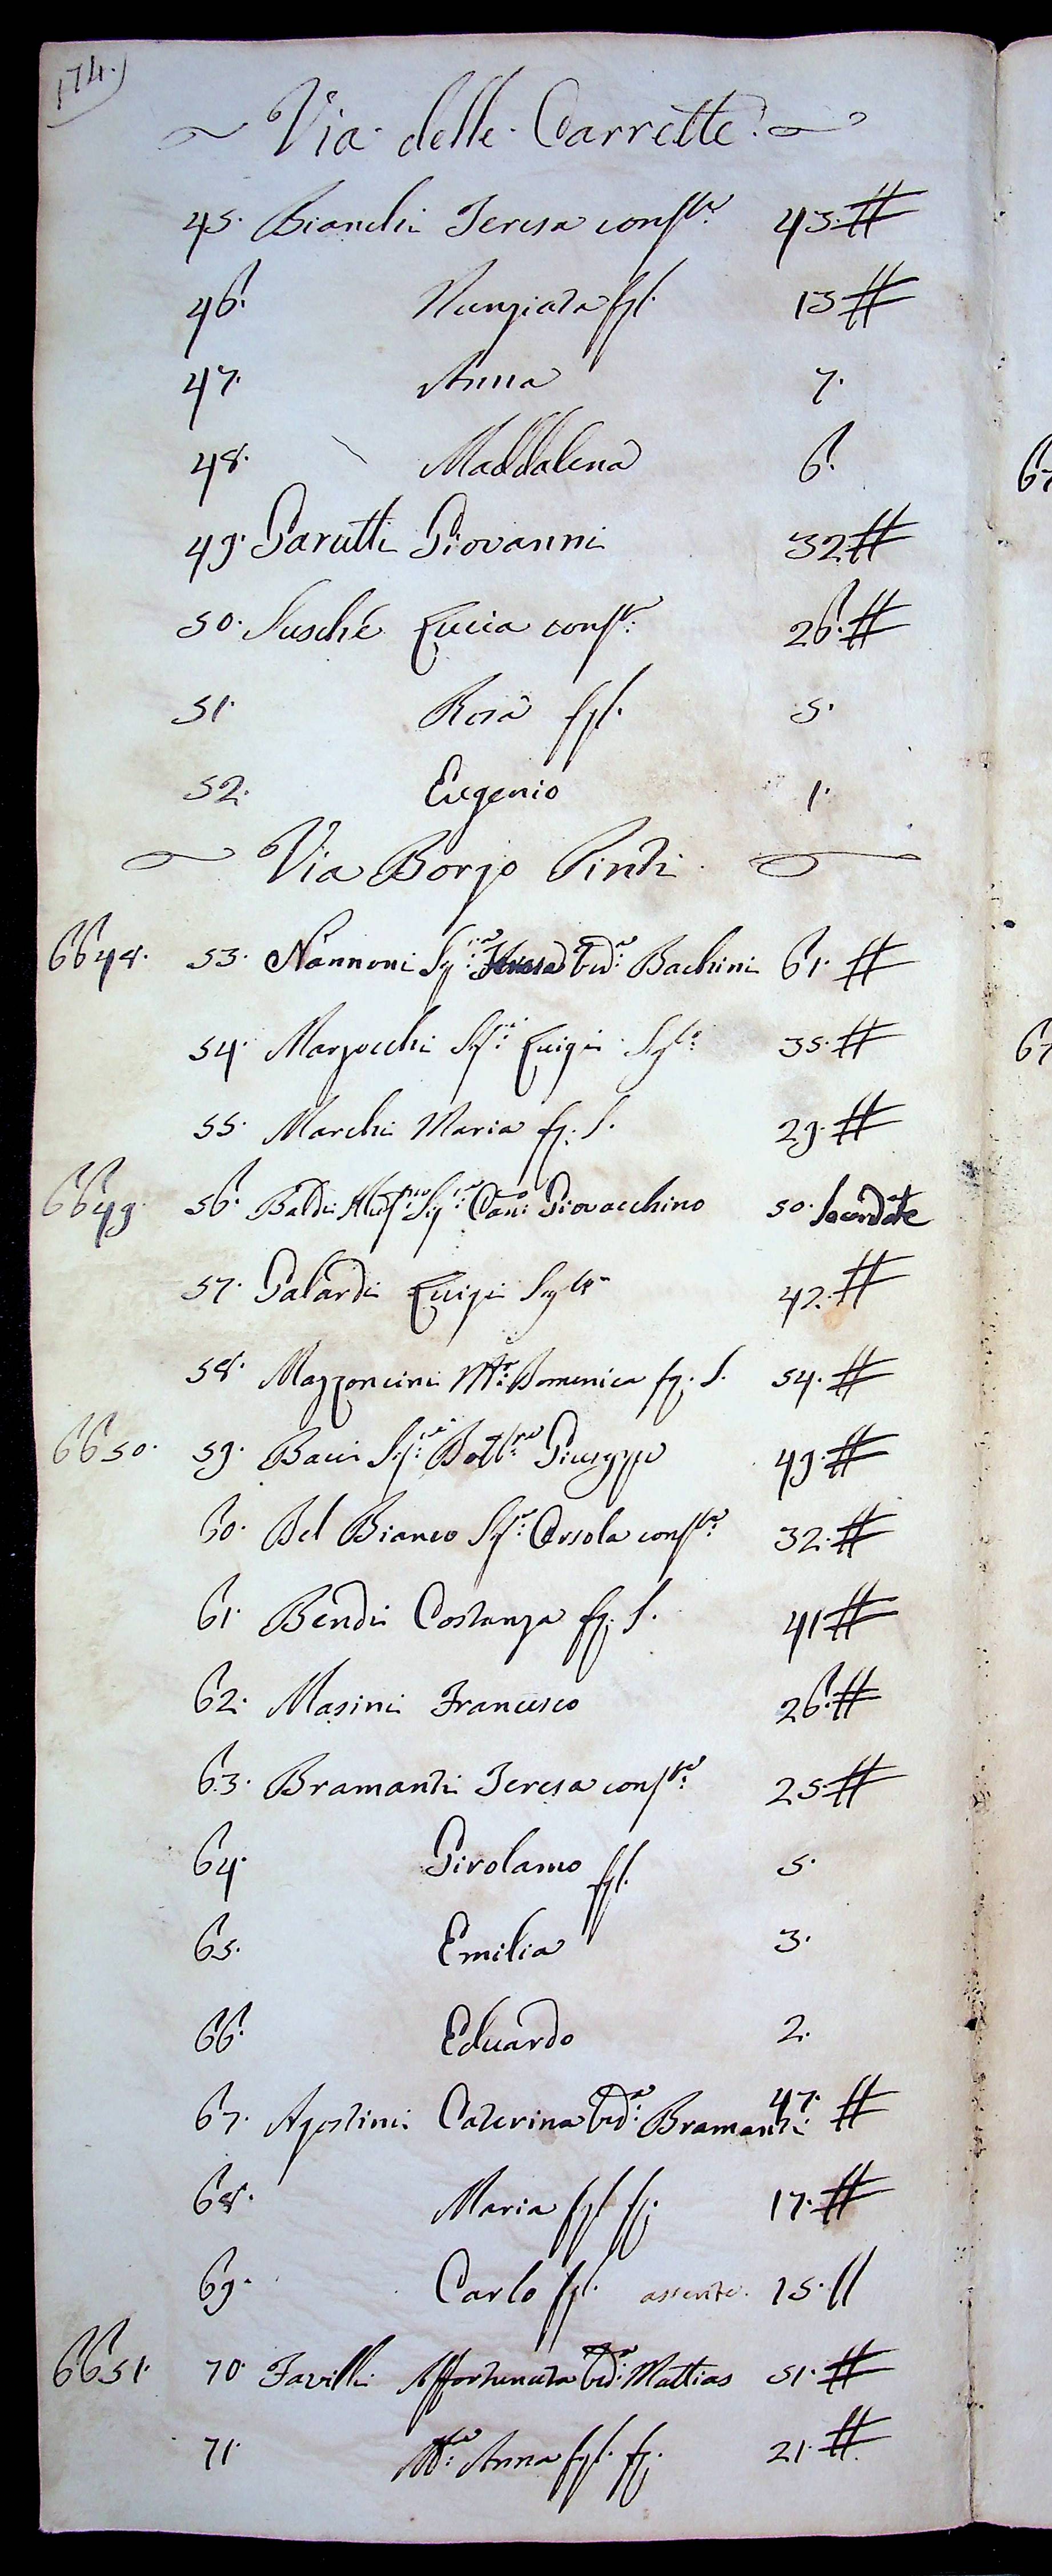 174.)
Via delle Carrette
45. Bianchi Teresa conste: 43. #
46. Nunziata fgl. 13 #
47. Anna 7.
48. Maddalena 6.
49. Garutti Giovanni 32. #
50. Susché Lucia conste: 26. #
51. Rosa fgl. 5.
52. Eugenio 1.
Via Borgo Pinti
6648. 53. Nannoni Sigra: Teresa Veda: Bachini 61. #
54. Marzocchi Sigr: Luigi Sglo: 35. #
55. Marchi Maria fz. S. 29. #
6649. 56. Baldi Illmo Sigr: Cano: Giovacchino 50. Sacerdote
57. Galardi Luigi Sglo 42. #
58. Mazzoncini Ma: Domenica fz. S. 54. #
6650. 59. Bacci Sigr: Dottre: Giuseppe 49. #
60. Del Bianco Siga: Orsola conste: 32. #
61. Bendi Costanza fz. S. 41 #
62. Masini Francesco 26. #
63. Bramanti Teresa conste: 25 #
64. Girolamo fgl. 5.
65. Emilia 3.
66. Eduardo 2.
67. Agostini Caterina Veda: Bramanti 47. #
68. Maria fgl fz. 17. #
69. Carlo fgl. assente. 15. //
6651. 70. Favilli Affortunata Veda: Mattias 51. #
71. Ma: Anna fgl. fz. 21. #
67
67